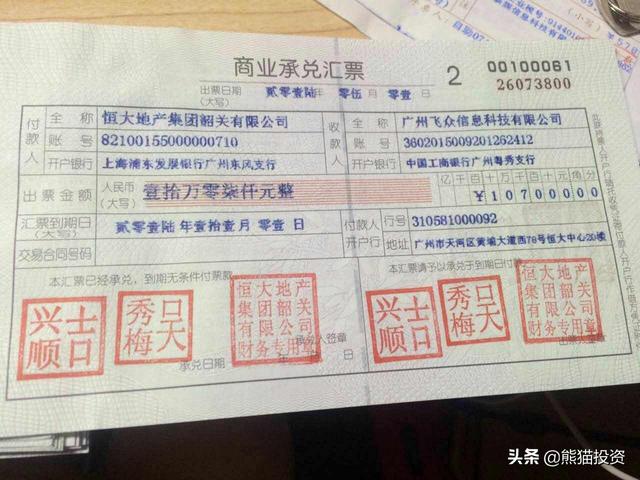 商业承兑汇票
2
00100061
26073800
出票日期
(大写)
贰零壹陆 年 零伍 月 零壹 日
付款人
全称
恒大地产集团韶关有限公司
账号
82100155000000710
开户银行
上海浦东发展银行广州东风支行
收款人
全称
广州飞众信息科技有限公司
账号
3602015009201262412
开户银行
中国工商银行广州粤秀支行
出票金额
人民币
(大写)
壹拾万零柒仟元整
亿千百十万千百十元角分
¥10700000
汇票到期日
(大写)
贰零壹陆 年壹拾壹月 零壹 日
付款人开户行
行号
310581000092
地址
广州市天河区黄埔大道西78号恒大中心20楼
交易合同号码
本汇票已经承兑,到期无条件付票款
本汇票请予以承兑于到期日付款
恒大地产集团韶关有限公司财务专用章
恒大地产集团韶关有限公司财务专用章
承兑人签章
承兑日期 年 月 日
出票人签章
头条 @熊猫投资